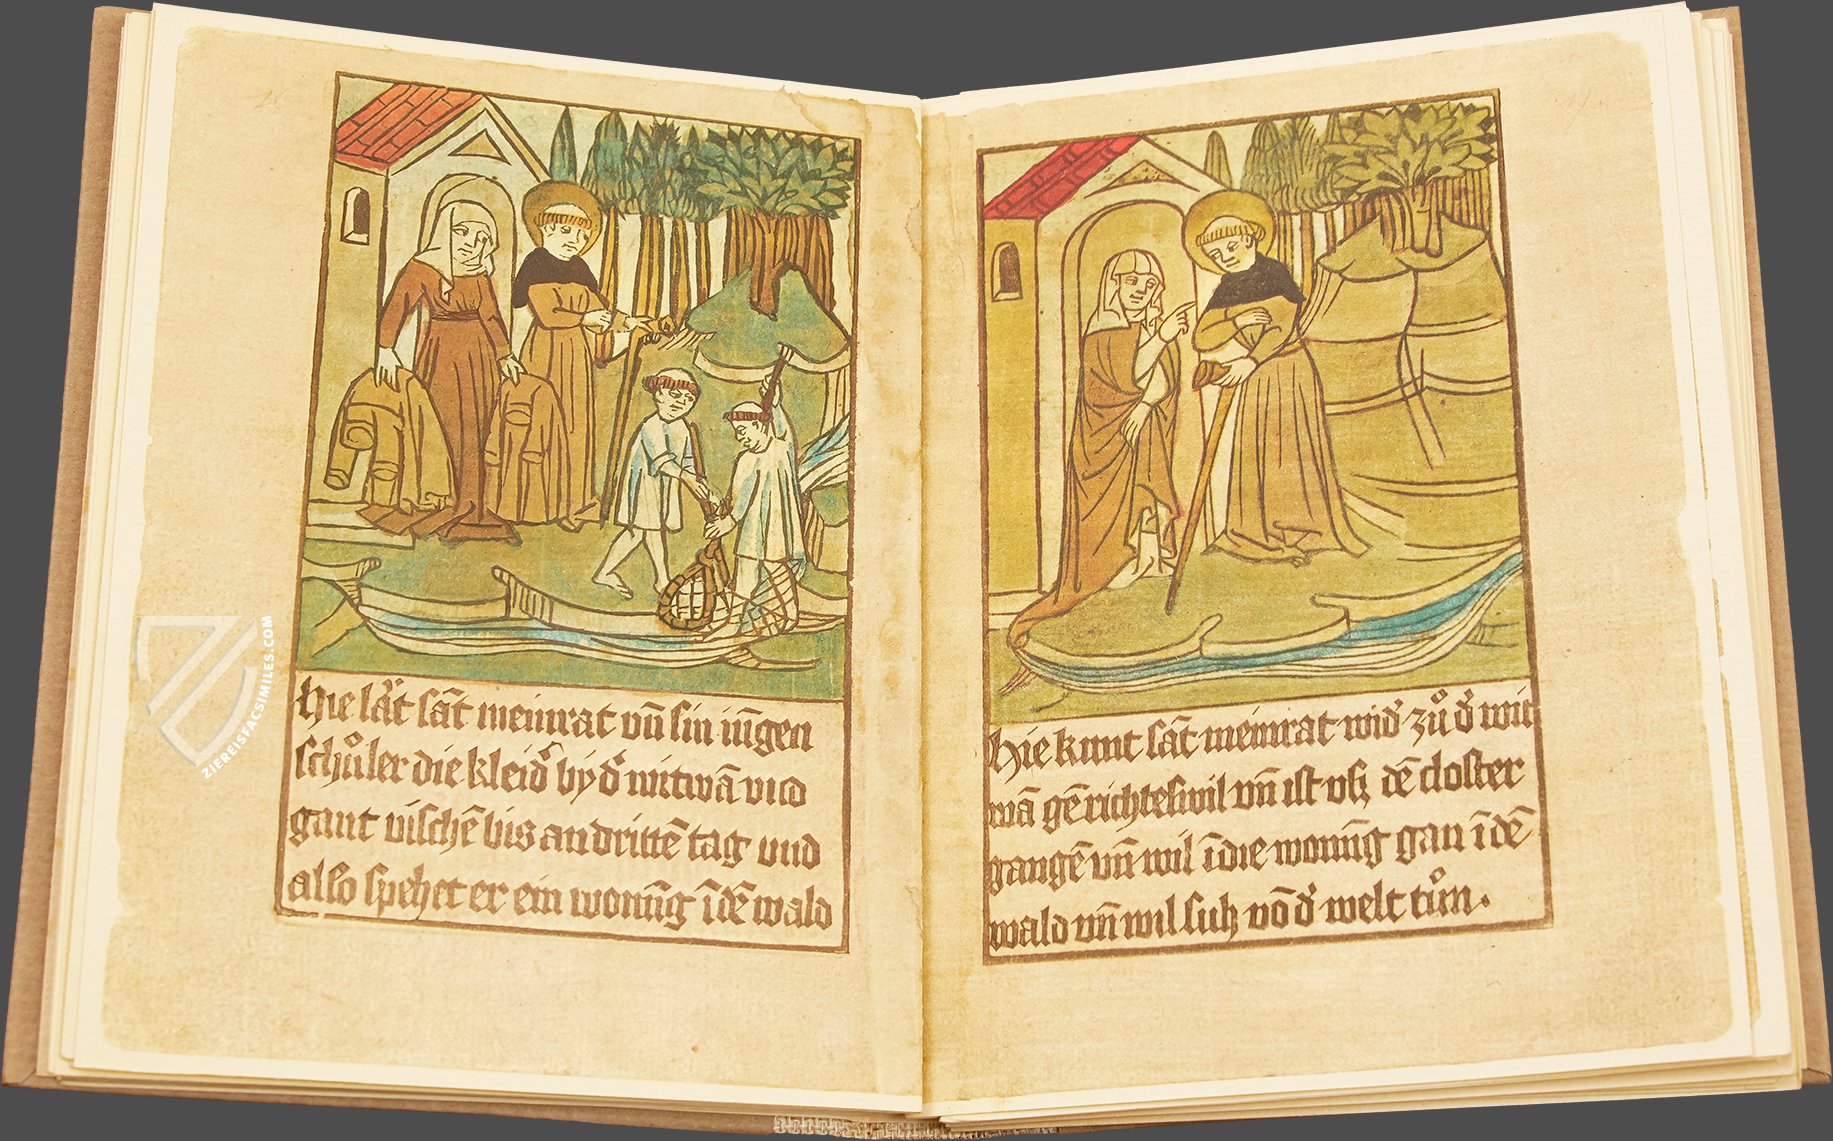 Hie lat̾ sāt meinrat vn̄ sin iūgen
schůler die kleid̾ by d̾ witwā vnd
gant vischē bis an drittē tag vnd
also spehet er ein wonūg īdē wald
Hie kunt sāt meinrat wid̾ zů d̾ wit
wā gē richteswil vn̄ ist vsz dē closter
gangē vn̄ wil īdie wonūg gan īdē
wald vn̄ wil sich vō d̾ welt tůn.
ZIEREISFACSIMILES.COM